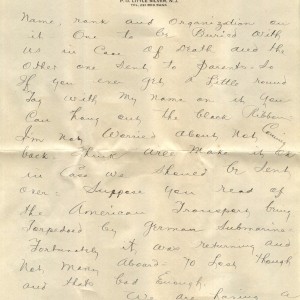 P. O. LITTLE SILVER, N. J.
Name, rank and Organization on
it One to be Buried With
us in Case Of Death and the
Other one Sent to parents. So
If you ever get a Little round
Tag with My Name on it you
Can hang out the black Ribbon.
I'm Not Worried About Not Coming
back. Think Ill Make it OK
in Case We Should be Sent
Over. Suppose you read of
the American Transport being
Torpedoed by German Submarine.
Fortunately it was returning and
Not Many Aboard. To Lose though
and thats bad Enough.
We are having a